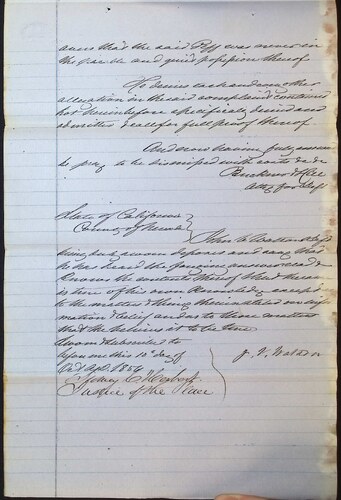 avers that the said Pltff was never in
the peaceable and quiet possession thereof
He denies each and every other
allegation in the said complaint contained
not hereinbefore specifically denied and
admitted & calls for full proof thereof.
And now having fully answered
he prays to be dismissed with costs &c &c
Atty for Deft
State of California
County of
John W. Deft
being duly sworn deposes and says that
he has heard the foregoing answer read &
knows the contents thereof that the same
is true of his own knowledge except
to the matters & things therein stated on infor-
mation & belief and as to those matters
that he believes it to be true
Sworn & subscribed to
before me this 10th day of
1854
Sidney
Justice of the Peace
J. V.